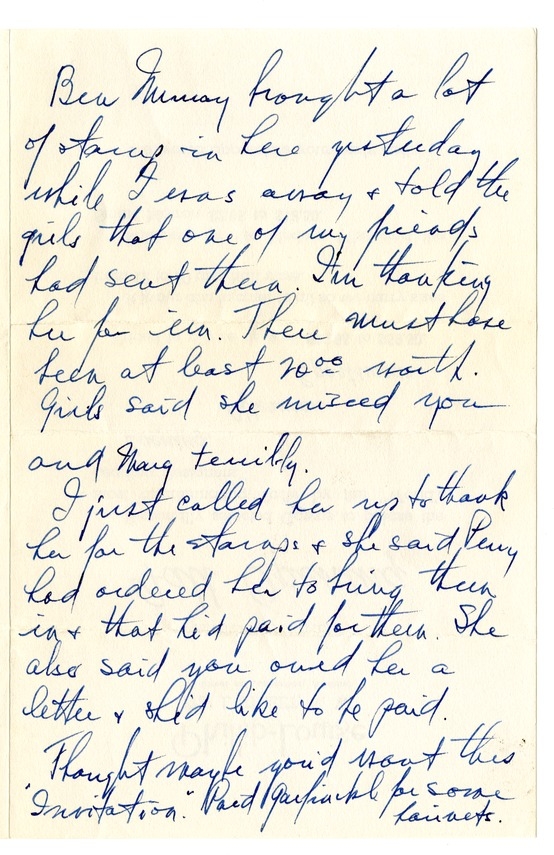 Bea Murray brought a lot
of stamps in here yesterday
while I was away & told the
girls that one of my friends
had sent them. I'm thanking
her for 'em. There must have
been at least 20⁰⁰ worth.
Girls said she missed you
and Marg terribly.
I just called her up to thank
her for the stamps & she said Perry
had ordered her to bring them
in & that he'd paid for them. She
also said you owed her a
letter & she'd like to be paid.
Thought maybe you'd want this
"Invitation." Paid Garfinckle for some